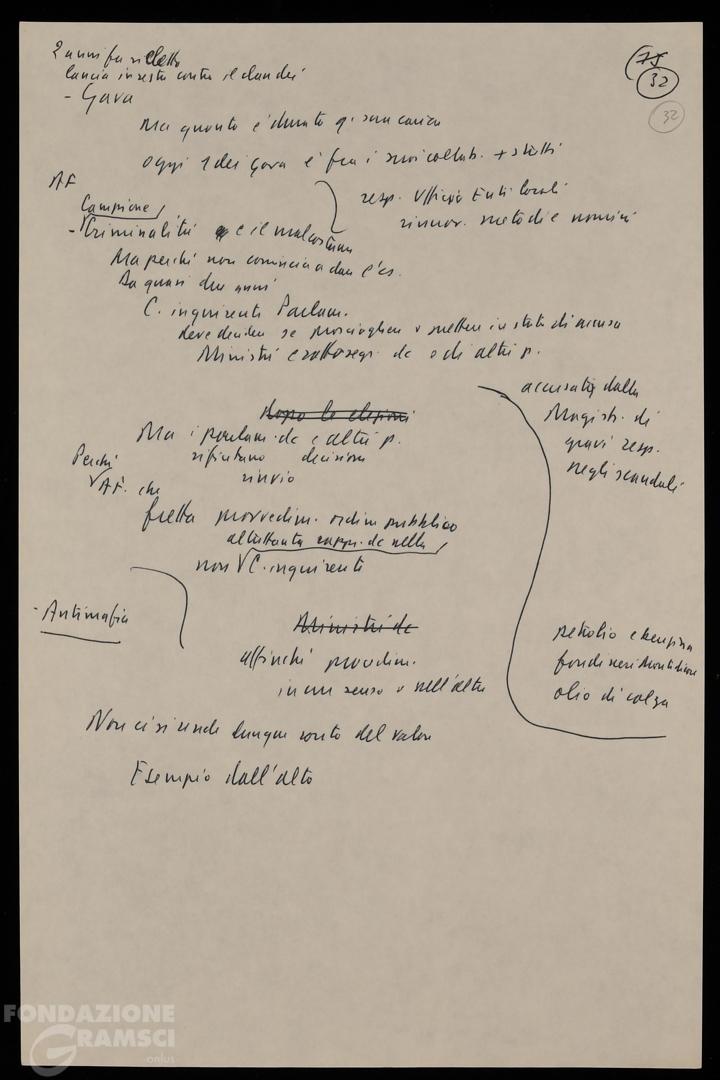 2 anni fa si detto
lancia in resta contro il clan dei
- Gava
Ma quanto è durata q. sua carica
oggi 1 dei Gava è fra i suoi collab. + stretti
resp. Ufficio Enti locali
rinnov. metodi e nomini
AF
Campione
- Criminalità e il malcostume
Ma perché non comincia a dare l'es.
Da quasi due anni
C. inquirente Parlam.
deve decidere se prosciogliere o mettere in stato di accusa
Ministri e sottosegr. dc e di altri p.
accusati dalla
Magistr. di
gravi resp.
negli scandali
petrolio e benzina
fondi neri Montedison
olio di colza
Dopo le elezioni
Ma i parlam. dc e altri p.
rifiutano decisioni
rinvio
Perché
AF. che
fretta provvedim. ordine pubblico
altrettanta rappr. dc nella
non C. inquirente
- Antimafia
Ministri dc
affinché provvedim.
in un senso o nell'altro
Non ci si rende dunque conto del valore
Esempio dall'alto
(75
32
32
FONDAZIONE
GRAMSCI
onlus